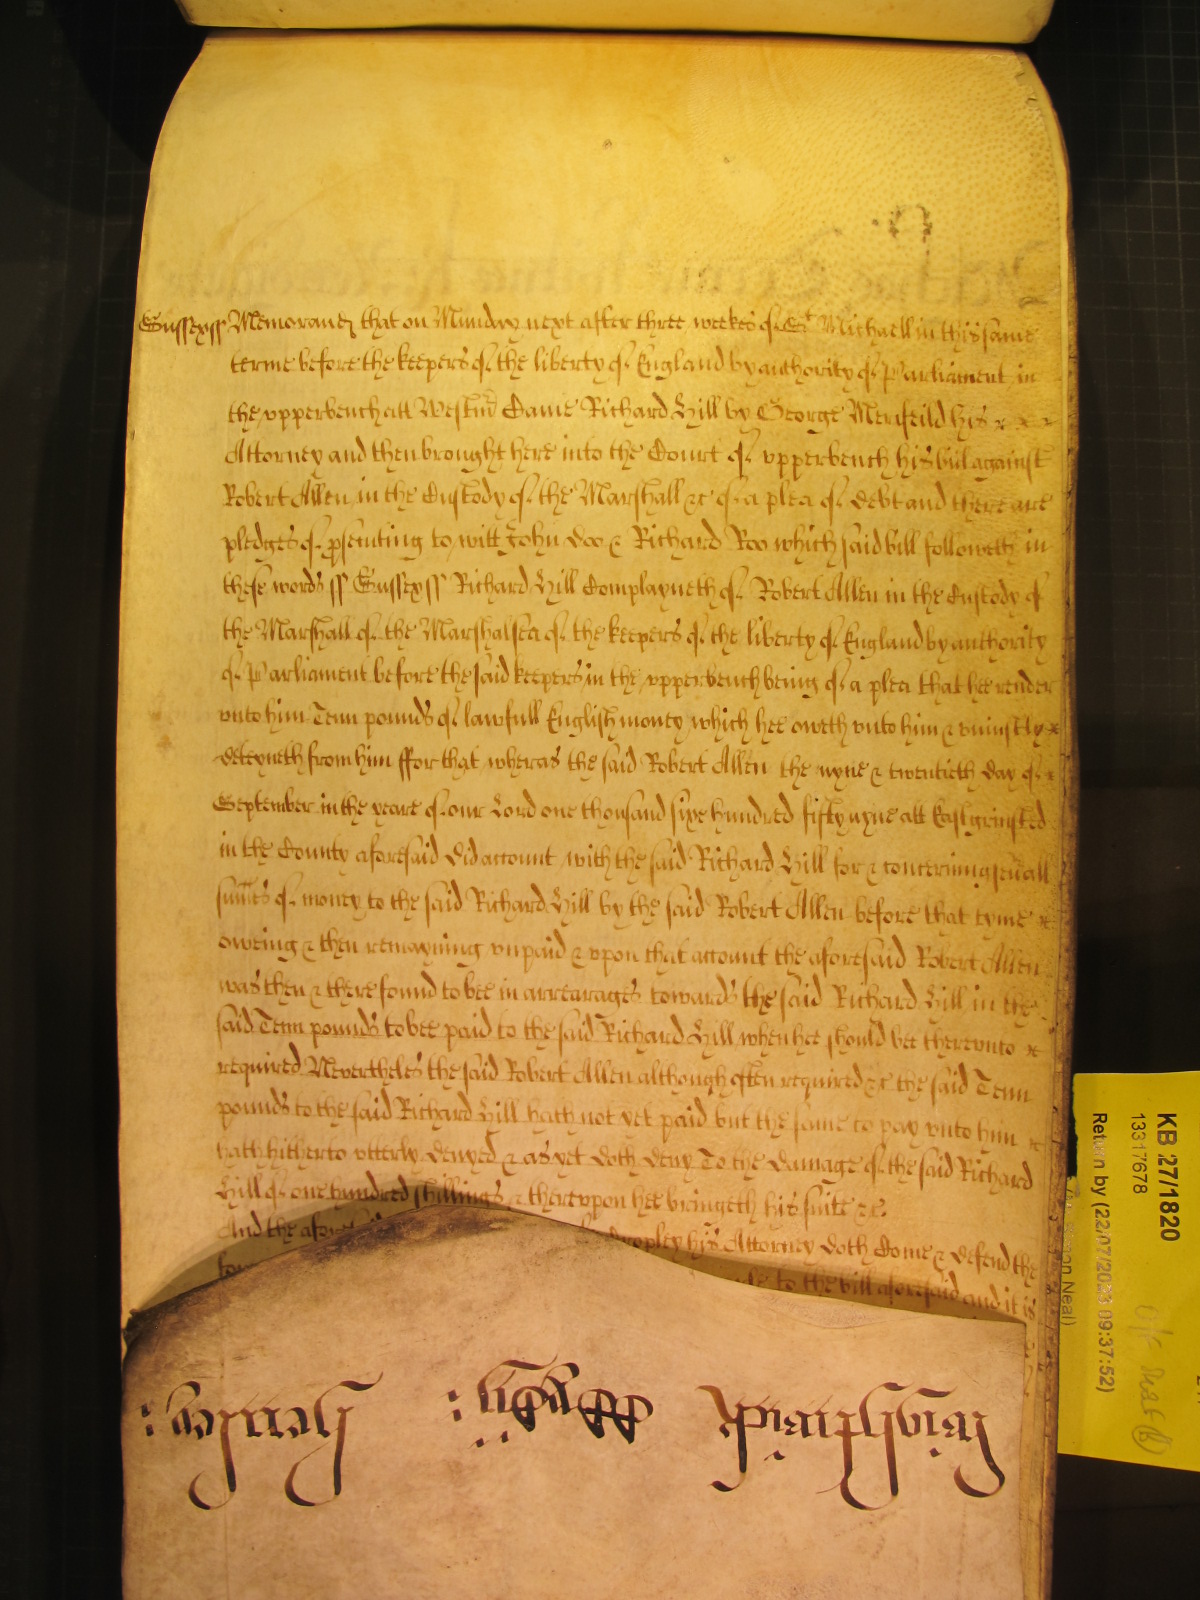 Sussex ss Memorand that on Munday next after three weekes of St Michaell in this same
terme before the keepers of the liberty of England by authority of Parliament in
the upperbench att Westmr Came Richard Hill by George Merifeild his
Attorney and then brought here into the Court of upperbench his bill against
Robert Allen in the Custody of the Marshall &c of a plea of debt and there are
pledges of psenting to witt John Doo & Richard Roo which said bill followeth in
these words ss Sussex ss Richard Hill Complayneth of Robert Allen in the Custody of
the Marshall of the Marshalsea of the keepers of the liberty of England by authority
of Parliament before the said keepers in the upperbench being of a plea that hee render
unto him Tenn pounds of lawfull English money which hee oweth unto him & uniustly
deteyneth from him ffor that wheras the said Robert Allen the nyne & twentieth day of
September in the yeare of our Lord one thousand sixe hundred fifty nyne att Eastgrinsted
in the County aforesaid did account with the said Richard Hill for & concerning sevall
sumes of money to the said Richard Hill by the said Robert Allen before that tyme
oweing & then remayning unpaid & upon that account the aforesaid Robert Allen
was then & there found to bee in arrearages towards the said Richard Hill in the
said Tenn pounds to bee paid to the said Richard Hill when hee should bee thereunto
required Nevertheles the said Robert Allen although often required &c the said Tenn
pounds to the said Richard Hill hath not yet paid but the same to pay unto him
hath hitherto utterly denyed & as yet doth deny To the damage of the said Richard
Hill of one hundred shillings & thereupon hee bringeth his suite &c
And the afores his Attorney doth Come & defend the
to the bill aforesaid and it is
KB 27/1820
13317678
Return by (22/07/2023 09:37:52)
Neal)